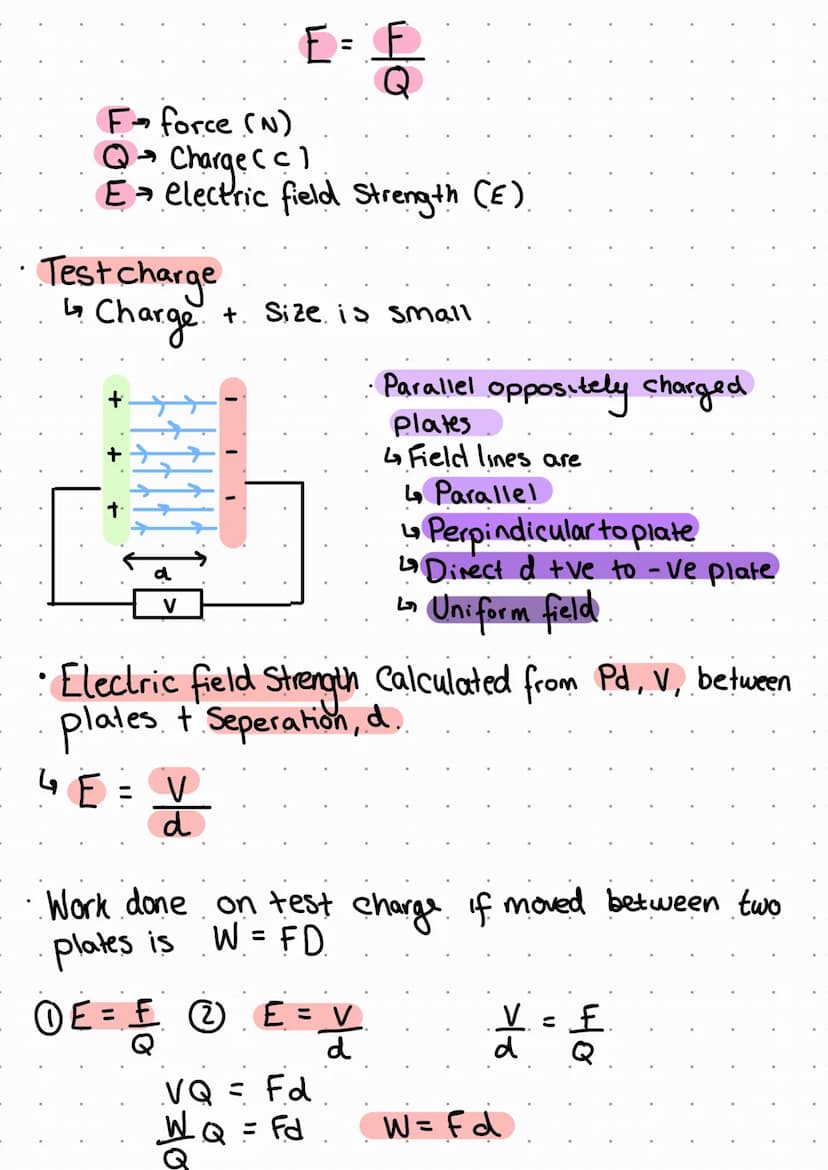 E = F/Q
F → force (N)
Q → Charge (C)
E → electric field Strength (E)
· Test charge
↳ Charge + Size is small
+ -
+ -
+ -
d
V
· Parallel oppositely charged
plates
↳ Field lines are
↳ Parallel
↳ Perpindicular to plate
↳ Direct d +ve to -ve plate
↳ Uniform field
· Electric field Strength Calculated from Pd, V, between
plates + Seperation, d.
↳ E = V/d
· Work done on test charge if moved between two
plates is W = FD
① E = F/Q ② E = V/d V/d = F/Q
VQ = Fd
W/Q Q = Fd W = Fd